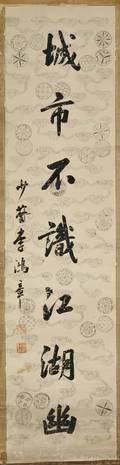 城市不識江湖幽
少荃李鴻章